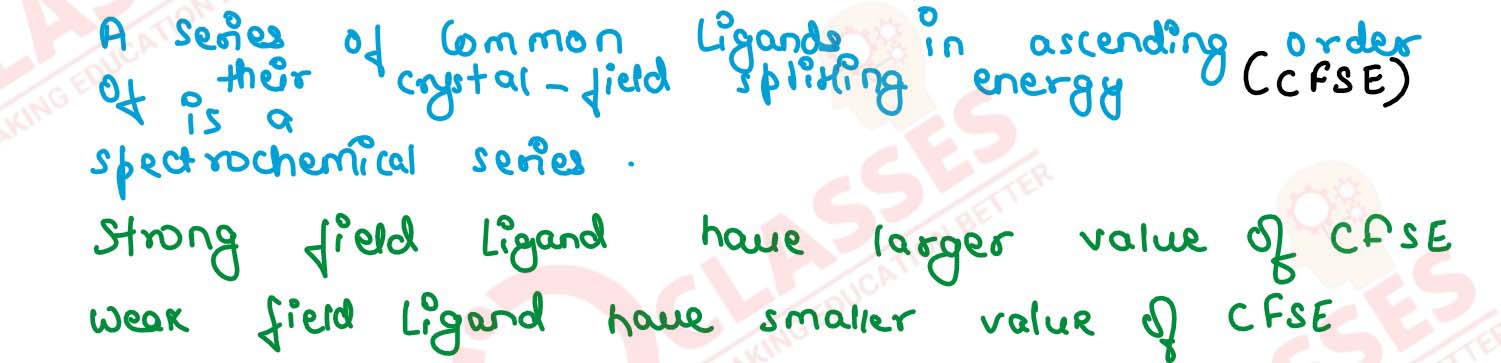 A series of Common Ligands in ascending order
of their crystal-field splitting energy (CFSE)
is a
spectrochemical series.
Strong field Ligand have larger value of CFSE
weak field Ligand have smaller value of CFSE